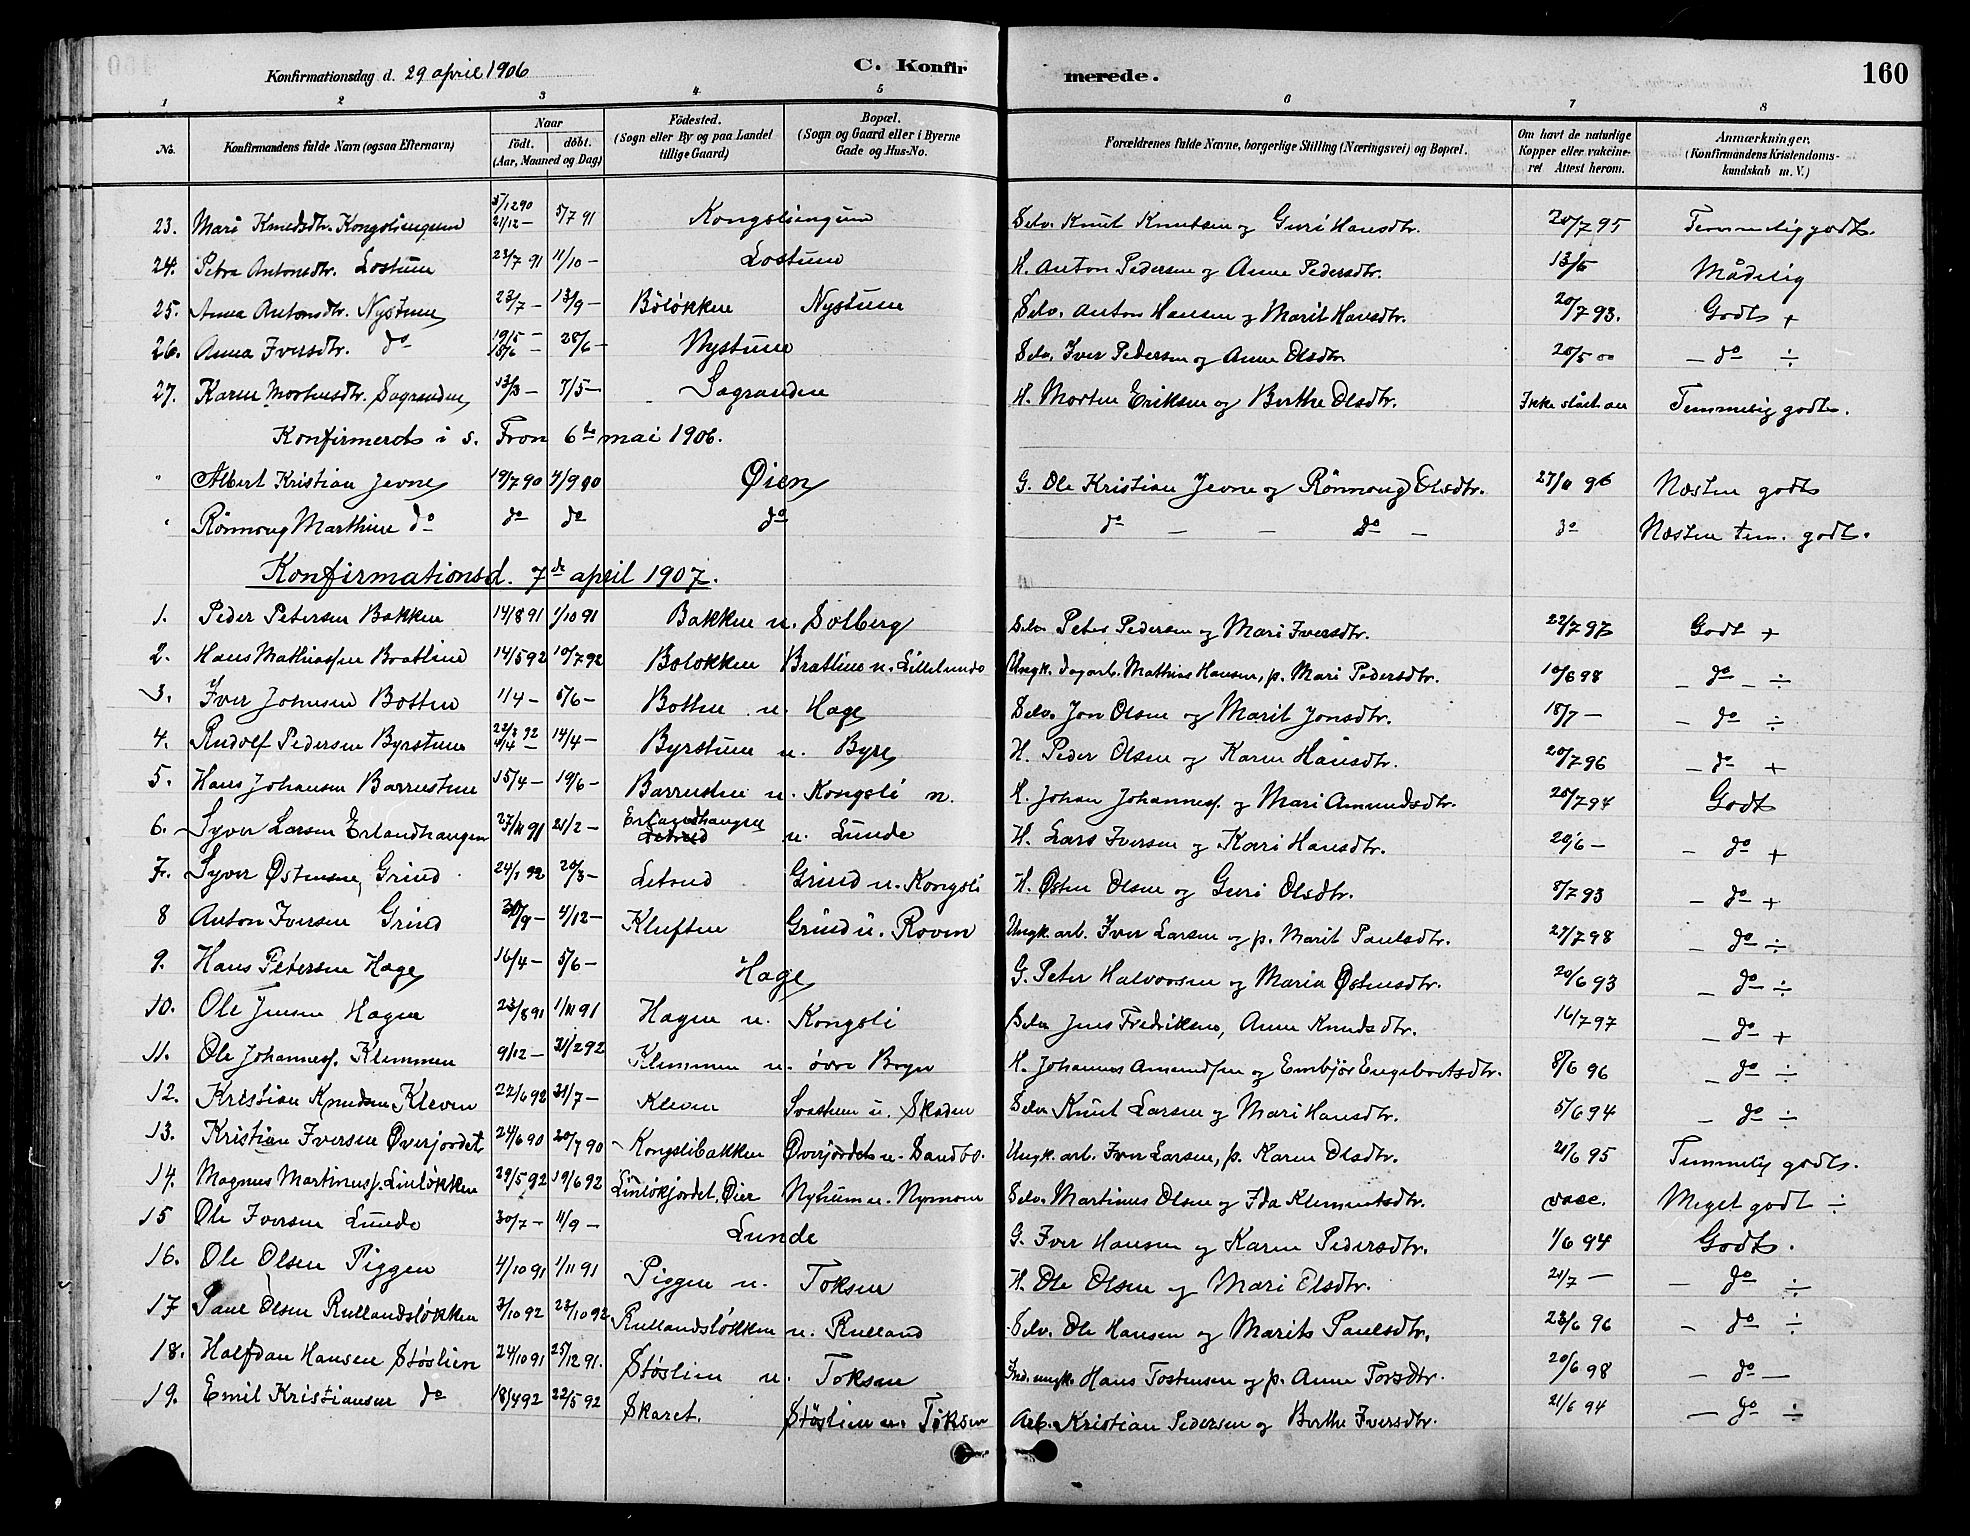 Konfirmationsdag d. 29 april 1906 C. Konfirmerede. 160
1 2 3 4 5 6 7 8
No. Konfirmandens fulde Navn (ogsaa Efternavn) Naar født. døbt. (Aar, Maaned og Dag) Fødested. (Sogn eller By og paa Landet tillige Gaard) Bopæl. (Sogn og Gaard eller i Byerne Gade og Hus-No. Forældrenes fulde Navne, borgerlige Stilling (Næringsvei) og Bopæl. Om havt de naturlige Kopper eller vakcineret Attest herom. Anmærkninger. (Konfirmandens Kristendomskundskab m. V.)
23. Mari Knudsdtr. Kongsliengum 5/12 90 21/12 – 5/7 91 Kongsliengum Selv. Knut Knutsen og Guri Hansdtr. 20/7 95 Temmelig godt.
24. Petra Antonsdtr. Lostuen 23/7 91 11/10 – Lostuen H. Anton Pedersen og Anne Pedersdtr. 13/6 Mådelig
25. Anna Antonsdtr. Nystuen 23/7 – 13/9 – Böløkken Nystuen Selv. Anton Hansen og Marit Hansdtr. 20/7 93. Godt +
26. Anna Iversdtr. do 28/6 – Nystuen Selv. Iver Pedersen og Anne Olsdtr. 20/5 00 – do ÷
27. Karen Mortensdtr. Sagranden 13/3 – 7/5 – Sagranden H. Morten Eriksen og Berthe Olsdtr. Ikke slået an Temmelig godt.
Konfirmerets i s. Fron 6te mai 1906.
" Albert Kristian Jevne 19/7 90 4/9 90 Øien G. Ole Kristian Jevne og Rønnoug Olsdtr. 27/11 96 Næsten godt
" Rønnoug Marthine do do do do do – – do – do Næsten tem. godt.
Konfirmationsd. 7de april 1907.
1. Peder Petersen Bakken 14/8 91 1/10 91 Bakken u. Solberg Selv. Peter Pedersen og Mari Iversdtr. 22/7 97 Godt +
2. Hans Mathiassen Bratlien 14/5 92 10/7 92 Boløkken Bratlien u. Lillelunde Ungk. dagarb. Mathias Hansen, p. Mari Pedersdtr. 10/6 98 – do – ÷
3. Iver Johnsen Botten 1/4 – 5/6 – Botten u. Hage Selv. Jon Olsen og Marit Jonsdtr. 18/7 – – do ÷
4. Rudolf Pedersen Byrstuen 22/3 92 4/4 – 14/4 – Byrstuen u. Byre H. Peder Olsen og Karen Hansdtr. 20/7 96 – do +
5. Hans Johansen Barrustuen 15/4 – 19/6 – Barrustuen u. Kongsli n. H. Johan Johannesf. og Mari Amundsdtr. 25/7 94 Godt
6. Syver Larsen Erlandhaugen 27/11 91 21/2 – Erlandhaugen u. Lunde H. Lars Iversen og Kari Hansdtr. 20/6 – – do +
7. Syver Østensen Grind 24/1 92 20/3 – Letrud Grind u. Kongsli H. Østen Olsen og Guri Olsdtr. 8/7 93 – do +
8 Anton Iversen Grind 30/9 – 4/12 – Kluften Grind u. Roven Ungk. arb. Iver Larsen og p. Marit Paulsdtr. 27/7 98 – do ÷
9. Hans Petersen Hage 16/4 – 5/6 – Hage G. Peter Halvorsen og Maria Østensdtr. 20/6 93 – do ÷
10. Ole Jensen Hagen 23/8 91 1/11 91 Hagen u. Kongsli Selv. Jens Fredriksen, Anne Knudsdtr. 16/7 97 – do +
11. Ole Johannesf. Klemmen 9/12 – 21/2 92 Klemmen u. øvre Bryn H. Johannes Amundsen og Embjør Engebretsdtr. 8/6 96 – do ÷
12. Kristian Knudsen Kleven 22/6 92 31/7 – Kleven u. Skaden Selv. Knut Larsen og Mari Hansdtr. 5/6 94 – do ÷
13. Kristian Iversen Øverjordet 24/6 90 20/7 90 Kongslibakken Øverjordet u. Sandbo. Ungk. arb. Iver Larsen, p. Karen Olsdtr. 21/6 95 Temmelig godt.
14. Magnus Martinusf. Linløkken 29/5 92 19/6 92 Linløkjordet, Øier Nyhum u. Nymoen Selv. Martinus Olsen og Ida Klementsdtr. vacc. Meget godt ÷
15 Ole Iversen Lunde 30/7 – 11/9 – Lunde G. Iver Hansen og Karen Pedersdtr. 1/6 94 Godt.
16. Ole Olsen Piggen 4/10 91 1/11 91 Piggen u. Toksen H. Ole Olsen og Mari Olsdtr. 21/7 – – do ÷
17 Paul Olsen Rullandsløkken 3/10 92 23/10 92 Rullandsløkken u. Rulland Selv. Ole Hansen og Marits Paulsdtr. 23/6 96 – do ÷
18. Halfdan Hansen Støslien 24/10 91 25/12 91. Støslien u. Toksen Ind. ungk. Hans Tostensen og p. Anne Torsdtr. 20/6 98 – do –
19. Emil Kristiansen do 18/4 92 22/5 92 Skaret. Støslien u. Toksen Arb. Kristian Pedersen og Berthe Iversdtr. 21/6 94 – do ÷